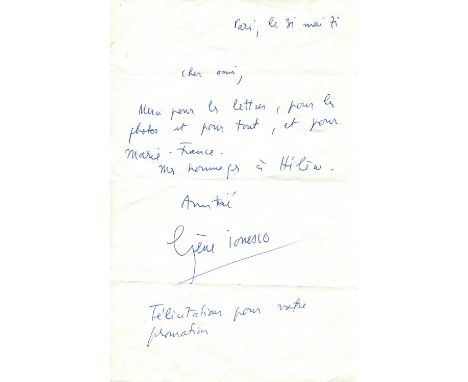 Paris, le 31 mai 71
Cher ami,
Merci pour les lettres, pour les
photos et pour tout, et pour
Marie-France.
Mes hommages à Hélène.
Amitié
Eugène Ionesco
Félicitations pour votre
promotion